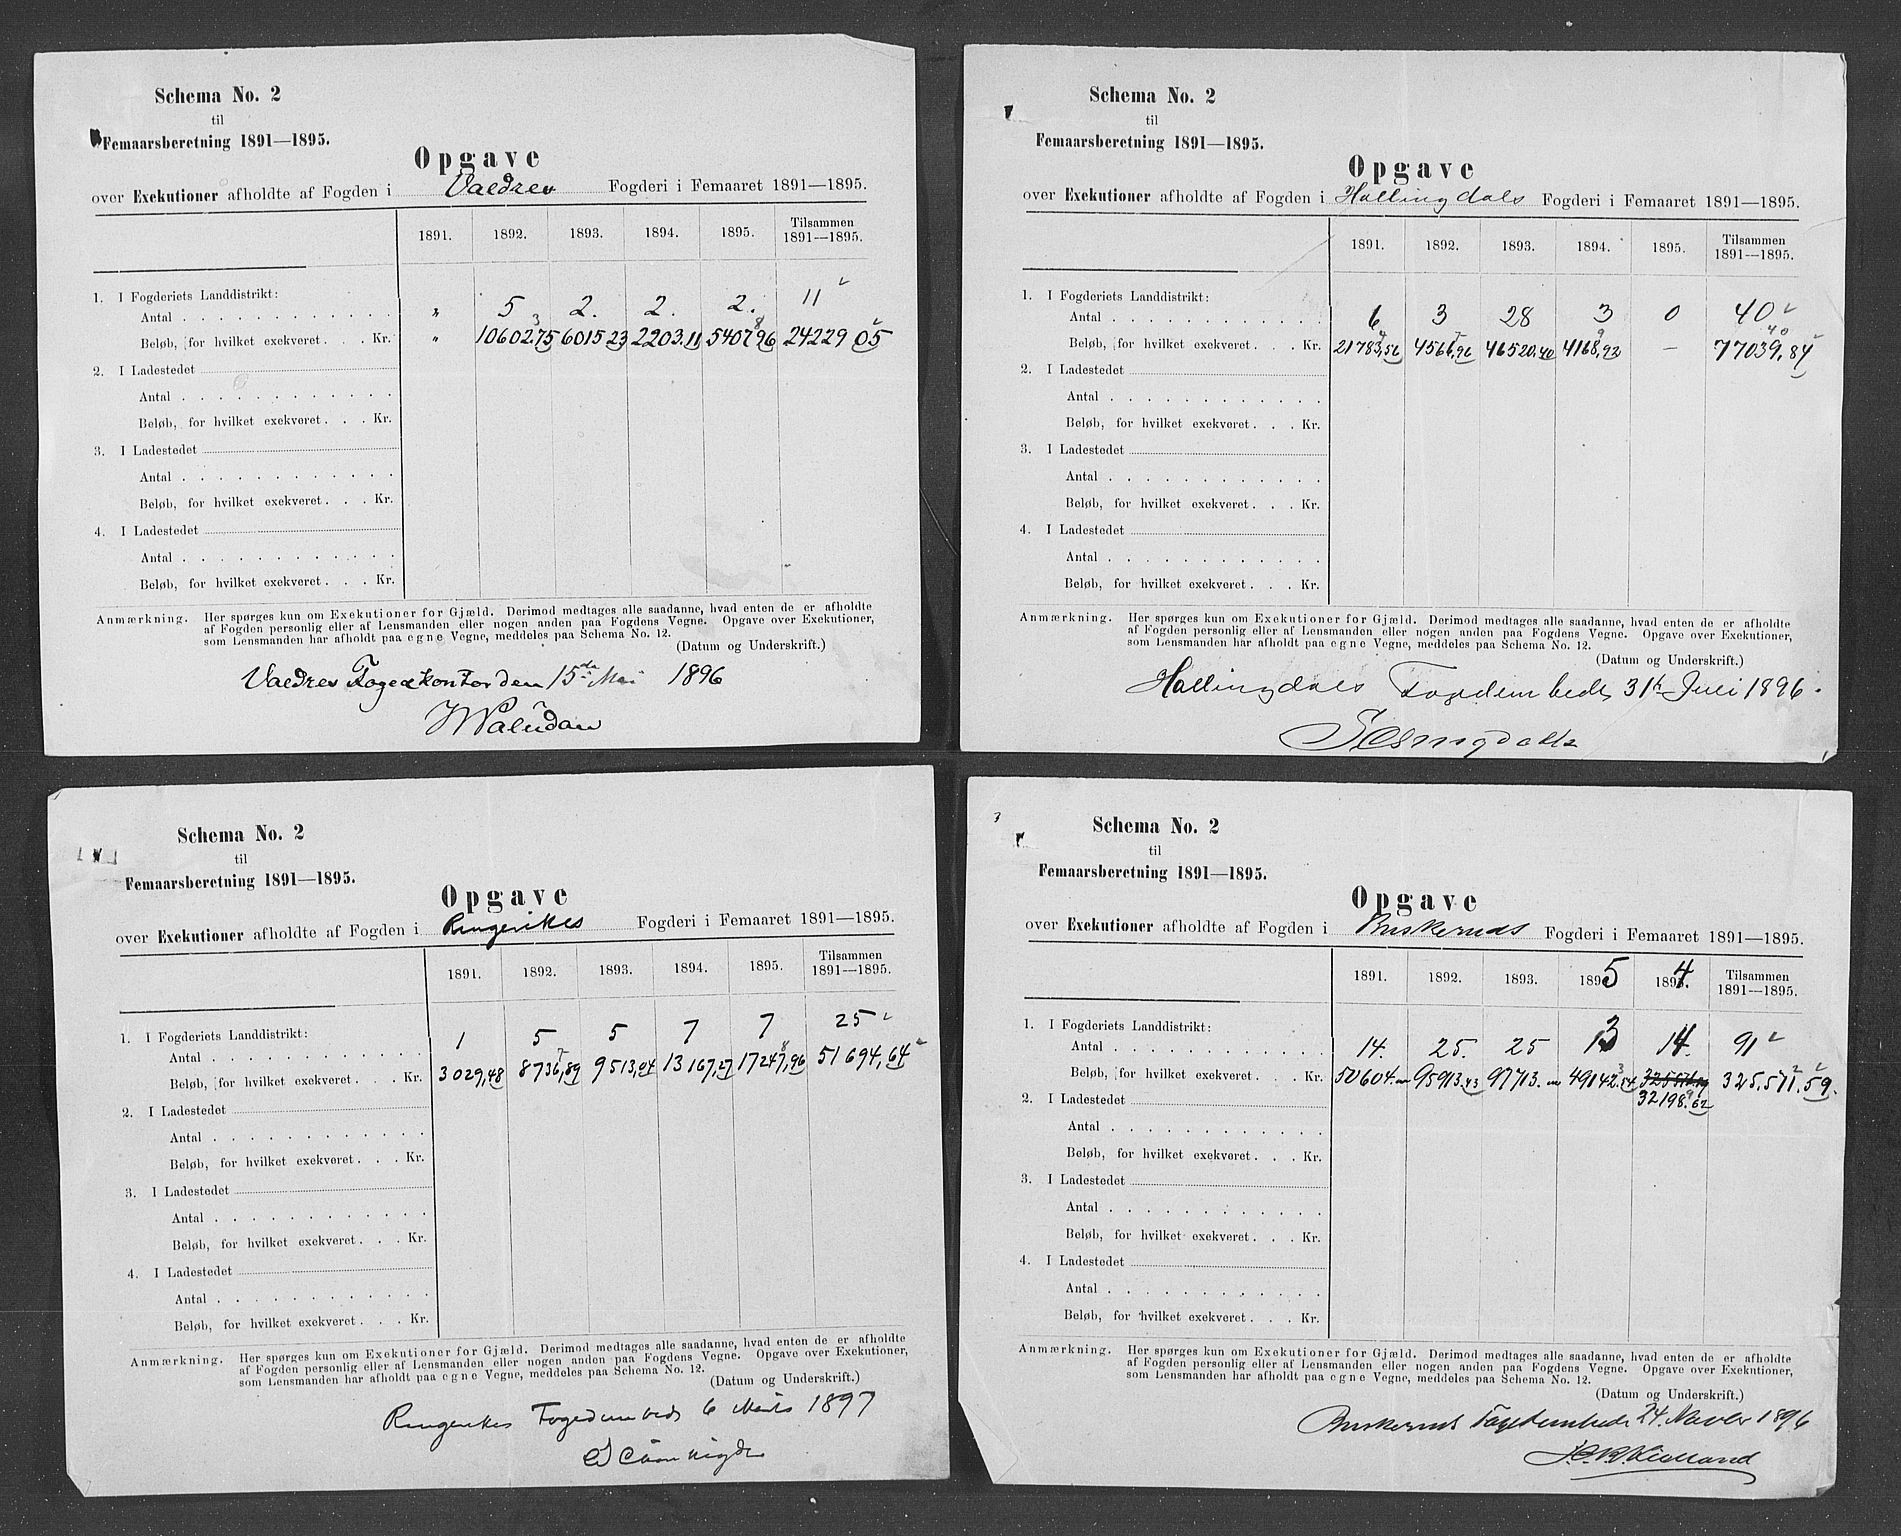 Schema No. 2
til
Femaarsberetning 1891—1895.
Opgave
over Exekutioner afholdte af Fogden i Valdres Fogderi i Femaaret 1891—1895.
1891. 1892. 1893. 1894. 1895. Tilsammen 1891—1895.
1. I Fogderiets Landdistrikt:
Antal . . . . . . . . . . . . " 5 2. 2. 2. 11
Beløb, for hvilket exekveret . . . Kr. " 10602.75 6015 23 2203.11 5407 96 24229 05
2. I Ladestedet
Antal . . . . . . . . . . . .
Beløb, for hvilket exekveret . . . Kr.
3. I Ladestedet
Antal . . . . . . . . . . . .
Beløb, for hvilket exekveret . . . Kr.
4. I Ladestedet
Antal . . . . . . . . . . . .
Beløb, for hvilket exekveret . . . Kr.
Anmærkning. Her spørges kun om Exekutioner for Gjæld. Derimod medtages alle saadanne, hvad enten de er afholdte
af Fogden personlig eller af Lensmanden eller nogen anden paa Fogdens Vegne. Opgave over Exekutioner,
som Lensmanden har afholdt paa egne Vegne, meddeles paa Schema No. 12.
(Datum og Underskrift.)
Valdres Fogedkontor den 15de Mai 1896
Paludan
Schema No. 2
til
Femaarsberetning 1891—1895.
Opgave
over Exekutioner afholdte af Fogden i Hallingdals Fogderi i Femaaret 1891—1895.
1891. 1892. 1893. 1894. 1895. Tilsammen 1891—1895.
1. I Fogderiets Landdistrikt:
Antal . . . . . . . . . . . . 6 3 28 3 0 40
Beløb, for hvilket exekveret . . . Kr. 21783,56 4566,96 46520,40 4168,92 — 77039,84
2. I Ladestedet
Antal . . . . . . . . . . . .
Beløb, for hvilket exekveret . . . Kr.
3. I Ladestedet
Antal . . . . . . . . . . . .
Beløb, for hvilket exekveret . . . Kr.
4. I Ladestedet
Antal . . . . . . . . . . . .
Beløb, for hvilket exekveret . . . Kr.
Anmærkning. Her spørges kun om Exekutioner for Gjæld. Derimod medtages alle saadanne, hvad enten de er afholdte
af Fogden personlig eller af Lensmanden eller nogen anden paa Fogdens Vegne. Opgave over Exekutioner,
som Lensmanden har afholdt paa egne Vegne, meddeles paa Schema No. 12.
(Datum og Underskrift.)
Hallingdals Fogdembede 31te Juli 1896.
Schema No. 2
til
Femaarsberetning 1891—1895.
Opgave
over Exekutioner afholdte af Fogden i Ringerikes Fogderi i Femaaret 1891—1895.
1891. 1892. 1893. 1894. 1895. Tilsammen 1891—1895.
1. I Fogderiets Landdistrikt:
Antal . . . . . . . . . . . . 1 5 5 7 7 25
Beløb, for hvilket exekveret . . . Kr. 3029,48 8736,89 9513,04 13167,27 17247,96 51694,64
2. I Ladestedet
Antal . . . . . . . . . . . .
Beløb, for hvilket exekveret . . . Kr.
3. I Ladestedet
Antal . . . . . . . . . . . .
Beløb, for hvilket exekveret . . . Kr.
4. I Ladestedet
Antal . . . . . . . . . . . .
Beløb, for hvilket exekveret . . . Kr.
Anmærkning. Her spørges kun om Exekutioner for Gjæld. Derimod medtages alle saadanne, hvad enten de er afholdte
af Fogden personlig eller af Lensmanden eller nogen anden paa Fogdens Vegne. Opgave over Exekutioner,
som Lensmanden har afholdt paa egne Vegne, meddeles paa Schema No. 12.
(Datum og Underskrift.)
Ringerikes Fogedembede 6 Marts 1897
Schema No. 2
til
Femaarsberetning 1891—1895.
Opgave
over Exekutioner afholdte af Fogden i Buskeruds Fogderi i Femaaret 1891—1895.
1891. 1892. 1893. 1895 1894. Tilsammen 1891—1895.
1. I Fogderiets Landdistrikt:
Antal . . . . . . . . . . . . 14. 25. 25 13 14. 91
Beløb, for hvilket exekveret . . . Kr. 50604. 95913.43 97713. 49142.54 325571.59 325.571.59.
32198.62
2. I Ladestedet
Antal . . . . . . . . . . . .
Beløb, for hvilket exekveret . . . Kr.
3. I Ladestedet
Antal . . . . . . . . . . . .
Beløb, for hvilket exekveret . . . Kr.
4. I Ladestedet
Antal . . . . . . . . . . . .
Beløb, for hvilket exekveret . . . Kr.
Anmærkning. Her spørges kun om Exekutioner for Gjæld. Derimod medtages alle saadanne, hvad enten de er afholdte
af Fogden personlig eller af Lensmanden eller nogen anden paa Fogdens Vegne. Opgave over Exekutioner,
som Lensmanden har afholdt paa egne Vegne, meddeles paa Schema No. 12.
(Datum og Underskrift.)
Buskerud Fogdembede 24. Novbr 1896
Kielland